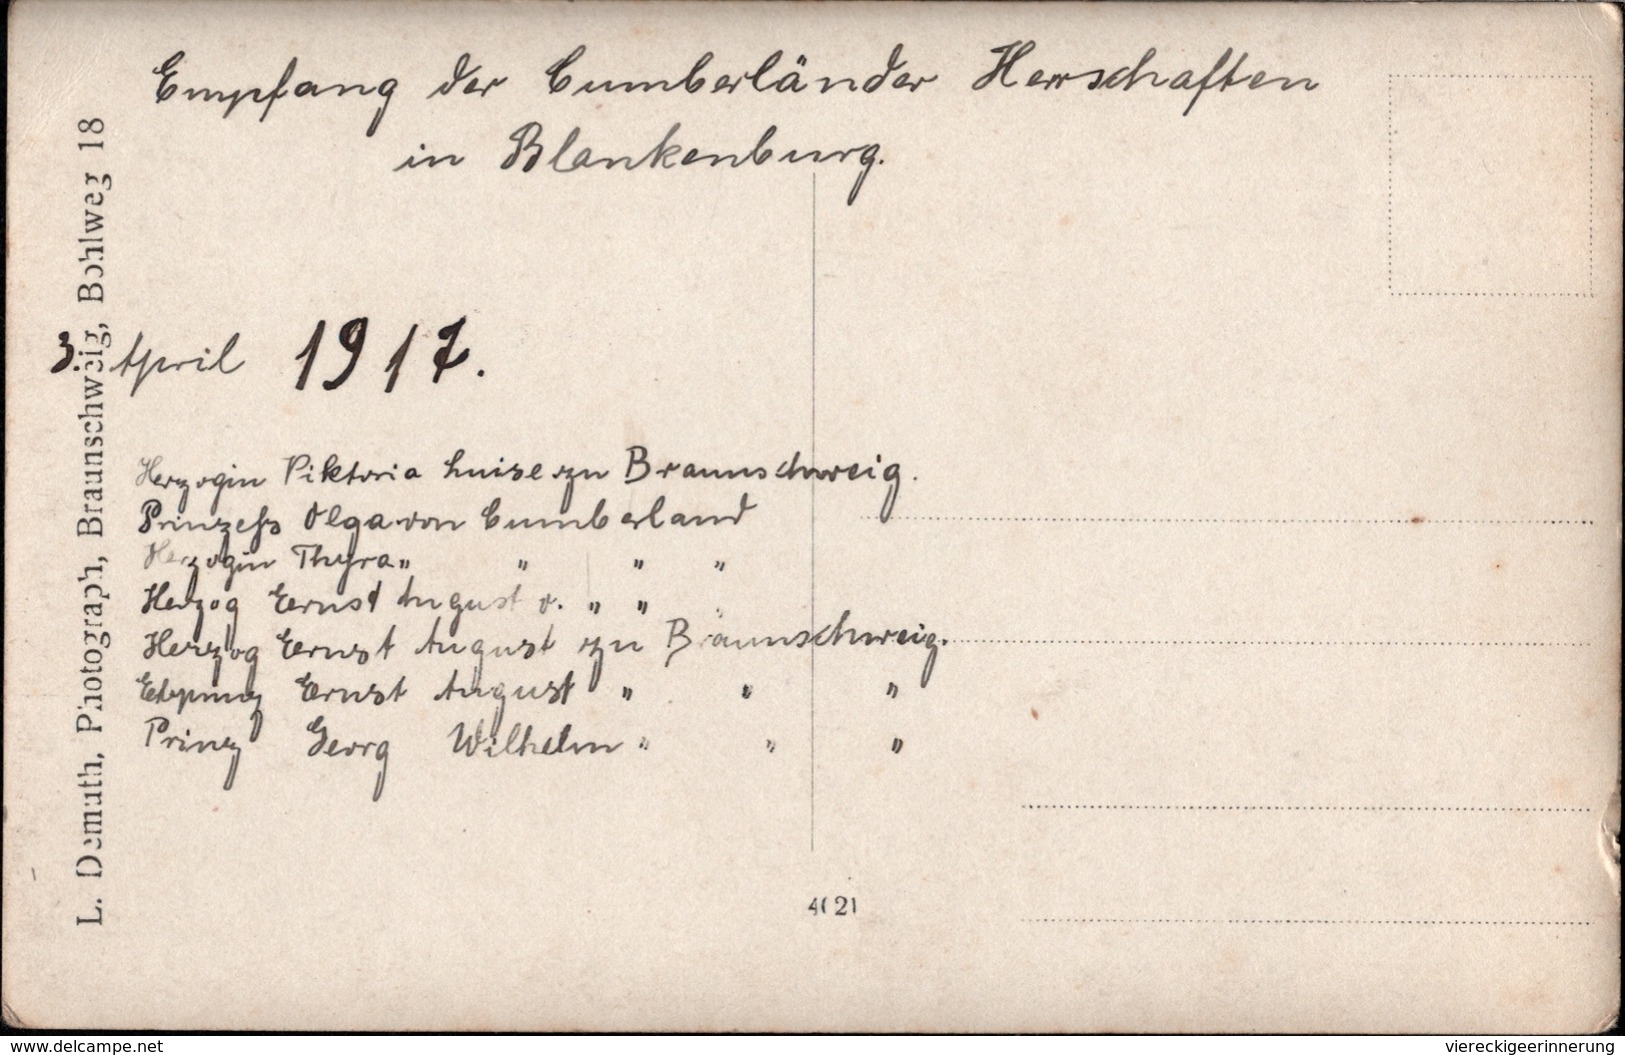 Empfang der Cumberländer Herrschaften
in Blankenburg.
3. April 1917.
Herzogin Viktoria Luise zu Braunschweig.
Prinzeß Olga von Cumberland
Herzogin Thyra " " " "
Herzog Ernst August v. " "
Herzog Ernst August zu Braunschweig.
Erbprinz Ernst August " " "
Prinz Georg Wilhelm " " "
L. Demuth, Photograph, Braunschweig, Bohlweg 18
4021
www.delcampe.net
viereckigeerinnerung